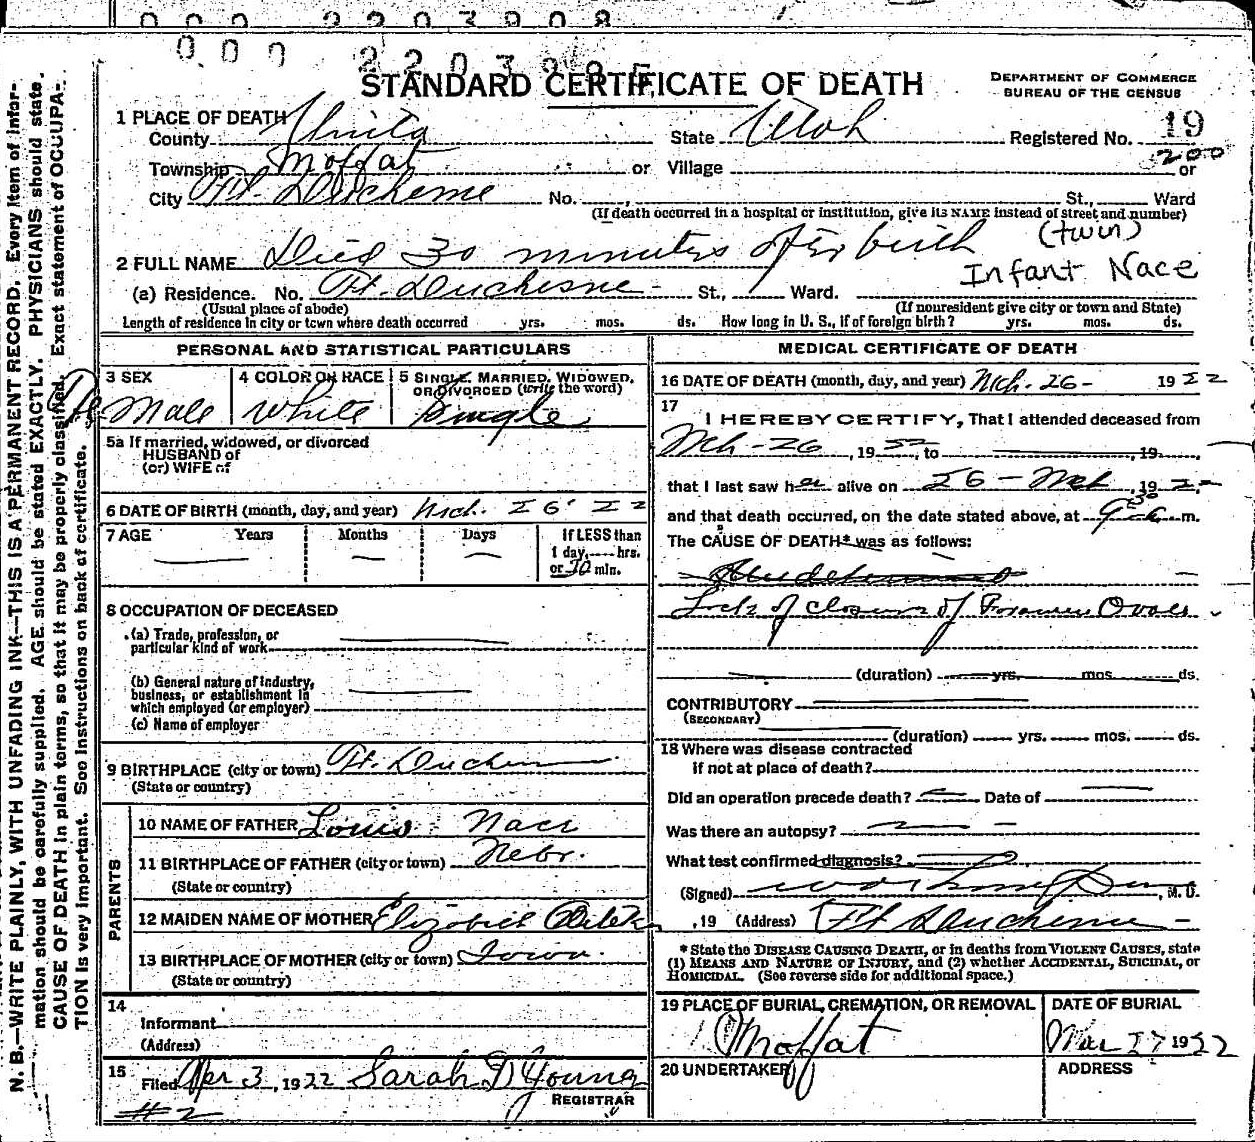 0 0 0 2 2 0 3 9 0 8
0 0 0 2 2 0 3 9 0 5
STANDARD CERTIFICATE OF DEATH
DEPARTMENT OF COMMERCE
BUREAU OF THE CENSUS
1 PLACE OF DEATH
County Uinta State Utah Registered No. 19
200
Township Moffat or Village or
City Ft. Duchesne No. St., Ward
(If death occurred in a hospital or institution, give its NAME instead of street and number)
2 FULL NAME Died 30 minutes after birth (twin)
Infant Nace
(a) Residence. No. Ft. Duchesne St., Ward.
(Usual place of abode) (If nonresident give city or town and State)
Length of residence in city or town where death occurred yrs. mos. ds. How long in U. S., if of foreign birth? yrs. mos. ds.
PERSONAL AND STATISTICAL PARTICULARS
3 SEX 4 COLOR OR RACE 5 SINGLE, MARRIED, WIDOWED, OR DIVORCED (write the word)
Male White Single
5a If married, widowed, or divorced
HUSBAND of
(or) WIFE of
6 DATE OF BIRTH (month, day, and year) Mch. 26 22
7 AGE Years Months Days If LESS than
1 day, hrs.
or 30 min.
8 OCCUPATION OF DECEASED
(a) Trade, profession, or
particular kind of work
(b) General nature of industry,
business, or establishment in
which employed (or employer)
(c) Name of employer
9 BIRTHPLACE (city or town) Ft. Duchesne
(State or country)
PARENTS
10 NAME OF FATHER Louis Nace
11 BIRTHPLACE OF FATHER (city or town) Nebr.
(State or country)
12 MAIDEN NAME OF MOTHER Elizabeth
13 BIRTHPLACE OF MOTHER (city or town) Iowa.
(State or country)
14
Informant
(Address)
15
Filed Apr 3, 1922 Sarah D Young
REGISTRAR
#2
MEDICAL CERTIFICATE OF DEATH
16 DATE OF DEATH (month, day, and year) Mch. 26- 1922
17
I HEREBY CERTIFY, That I attended deceased from
Mch-26, 1922, to , 19
that I last saw her alive on 26-Mch, 1922
and that death occurred, on the date stated above, at m.
The CAUSE OF DEATH* was as follows:
Lack of closure of Foramen Ovale
(duration) yrs. mos. ds.
CONTRIBUTORY
(SECONDARY)
(duration) yrs. mos. ds.
18 Where was disease contracted
if not at place of death?
Did an operation precede death? Date of
Was there an autopsy?
What test confirmed diagnosis?
(Signed) , M. D.
, 19 (Address) Ft Duchesne
* State the DISEASE CAUSING DEATH, or in deaths from VIOLENT CAUSES, state
(1) MEANS AND NATURE OF INJURY, and (2) whether ACCIDENTAL, SUICIDAL, or
HOMICIDAL. (See reverse side for additional space.)
19 PLACE OF BURIAL, CREMATION, OR REMOVAL DATE OF BURIAL
Moffat Mar 27 1922
20 UNDERTAKER ADDRESS
N. B.—WRITE PLAINLY, WITH UNFADING INK—THIS IS A PERMANENT RECORD. Every item of infor-
mation should be carefully supplied. AGE should be stated EXACTLY. PHYSICIANS should state
CAUSE OF DEATH in plain terms, so that it may be properly classified. Exact statement of OCCUPA-
TION is very important. See instructions on back of certificate.